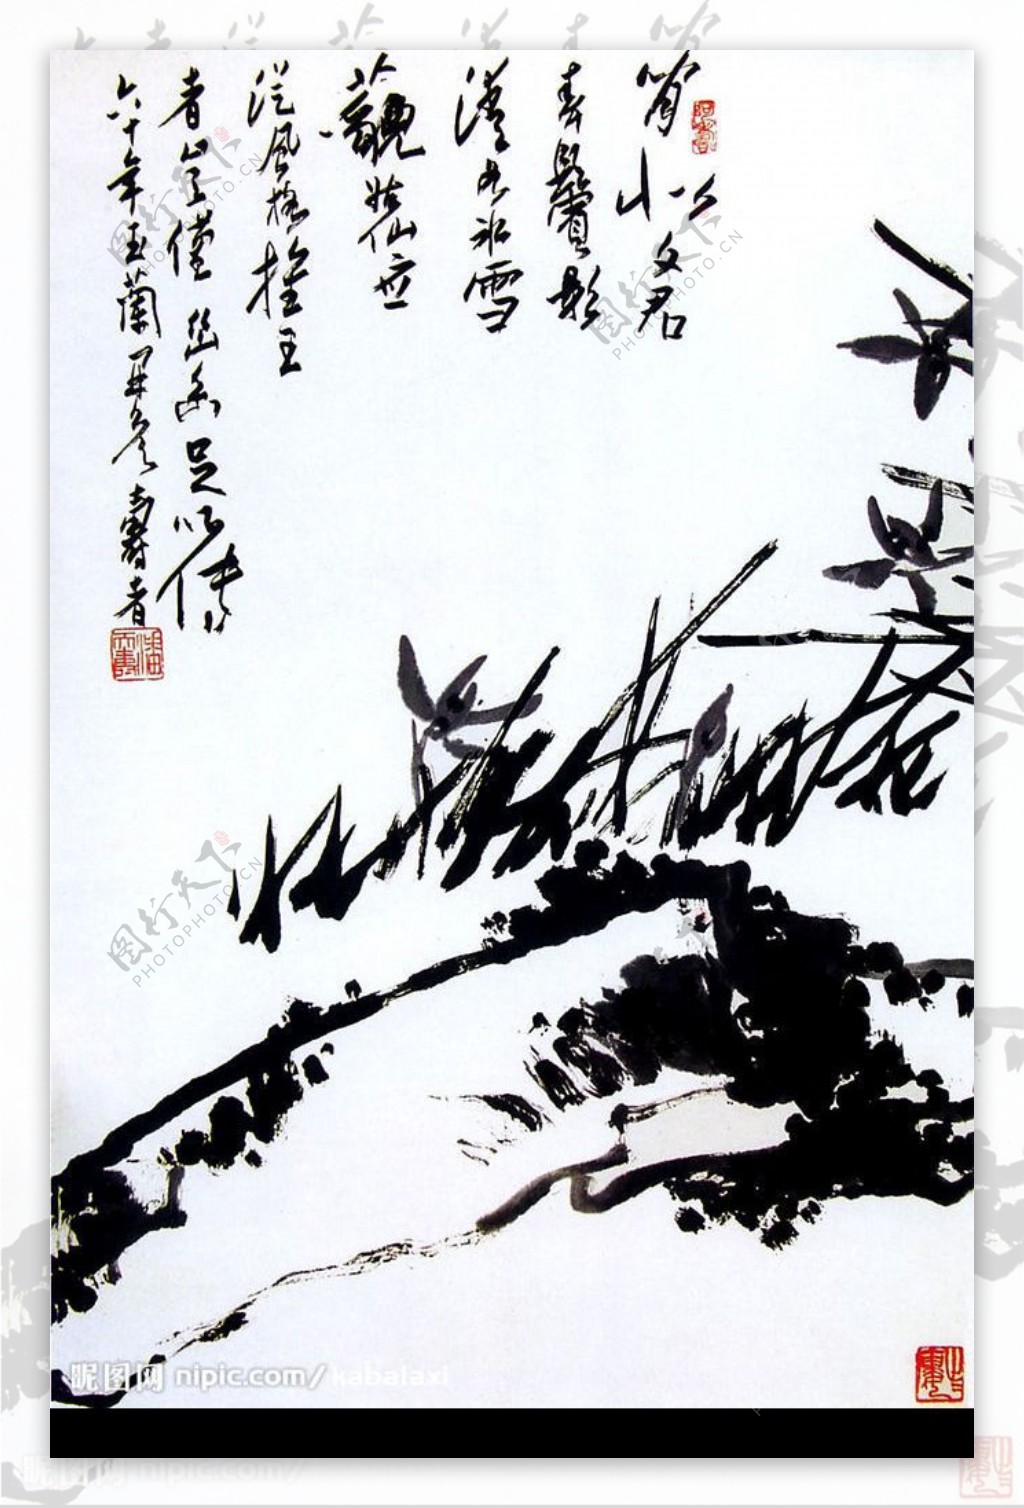 似文君
春鬢影
如冰雪
藐姑仙應
從風格推王
者豈僅幽香足以傳
六十年玉蘭開候壽者
图行天下
PHOTOPHOTO.CN
图行天下
PHOTOPHOTO.CN
图行天下
PHOTOPHOTO.CN
昵图网 nipic.com/kabalaxi